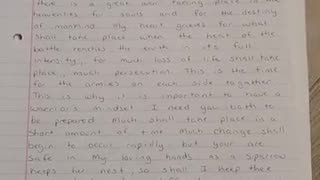 there is a great war taking place in the
heavenlies for souls and for the destiny
of mankind My heart grieves for what
shall take place when the heat of the
battle reaches the earth in it's full
intensity, for much loss of life shall take
place, much persecution. This is the time
for the armies on each side together
This is why it is important to have a
warriors mindset I need you both to
be prepared Much shall take place in a
short amount of time Much change shall
begin to occur rapidly but your are
safe in My loving hands as a sparrow
keeps her nest, so shall I keep thee